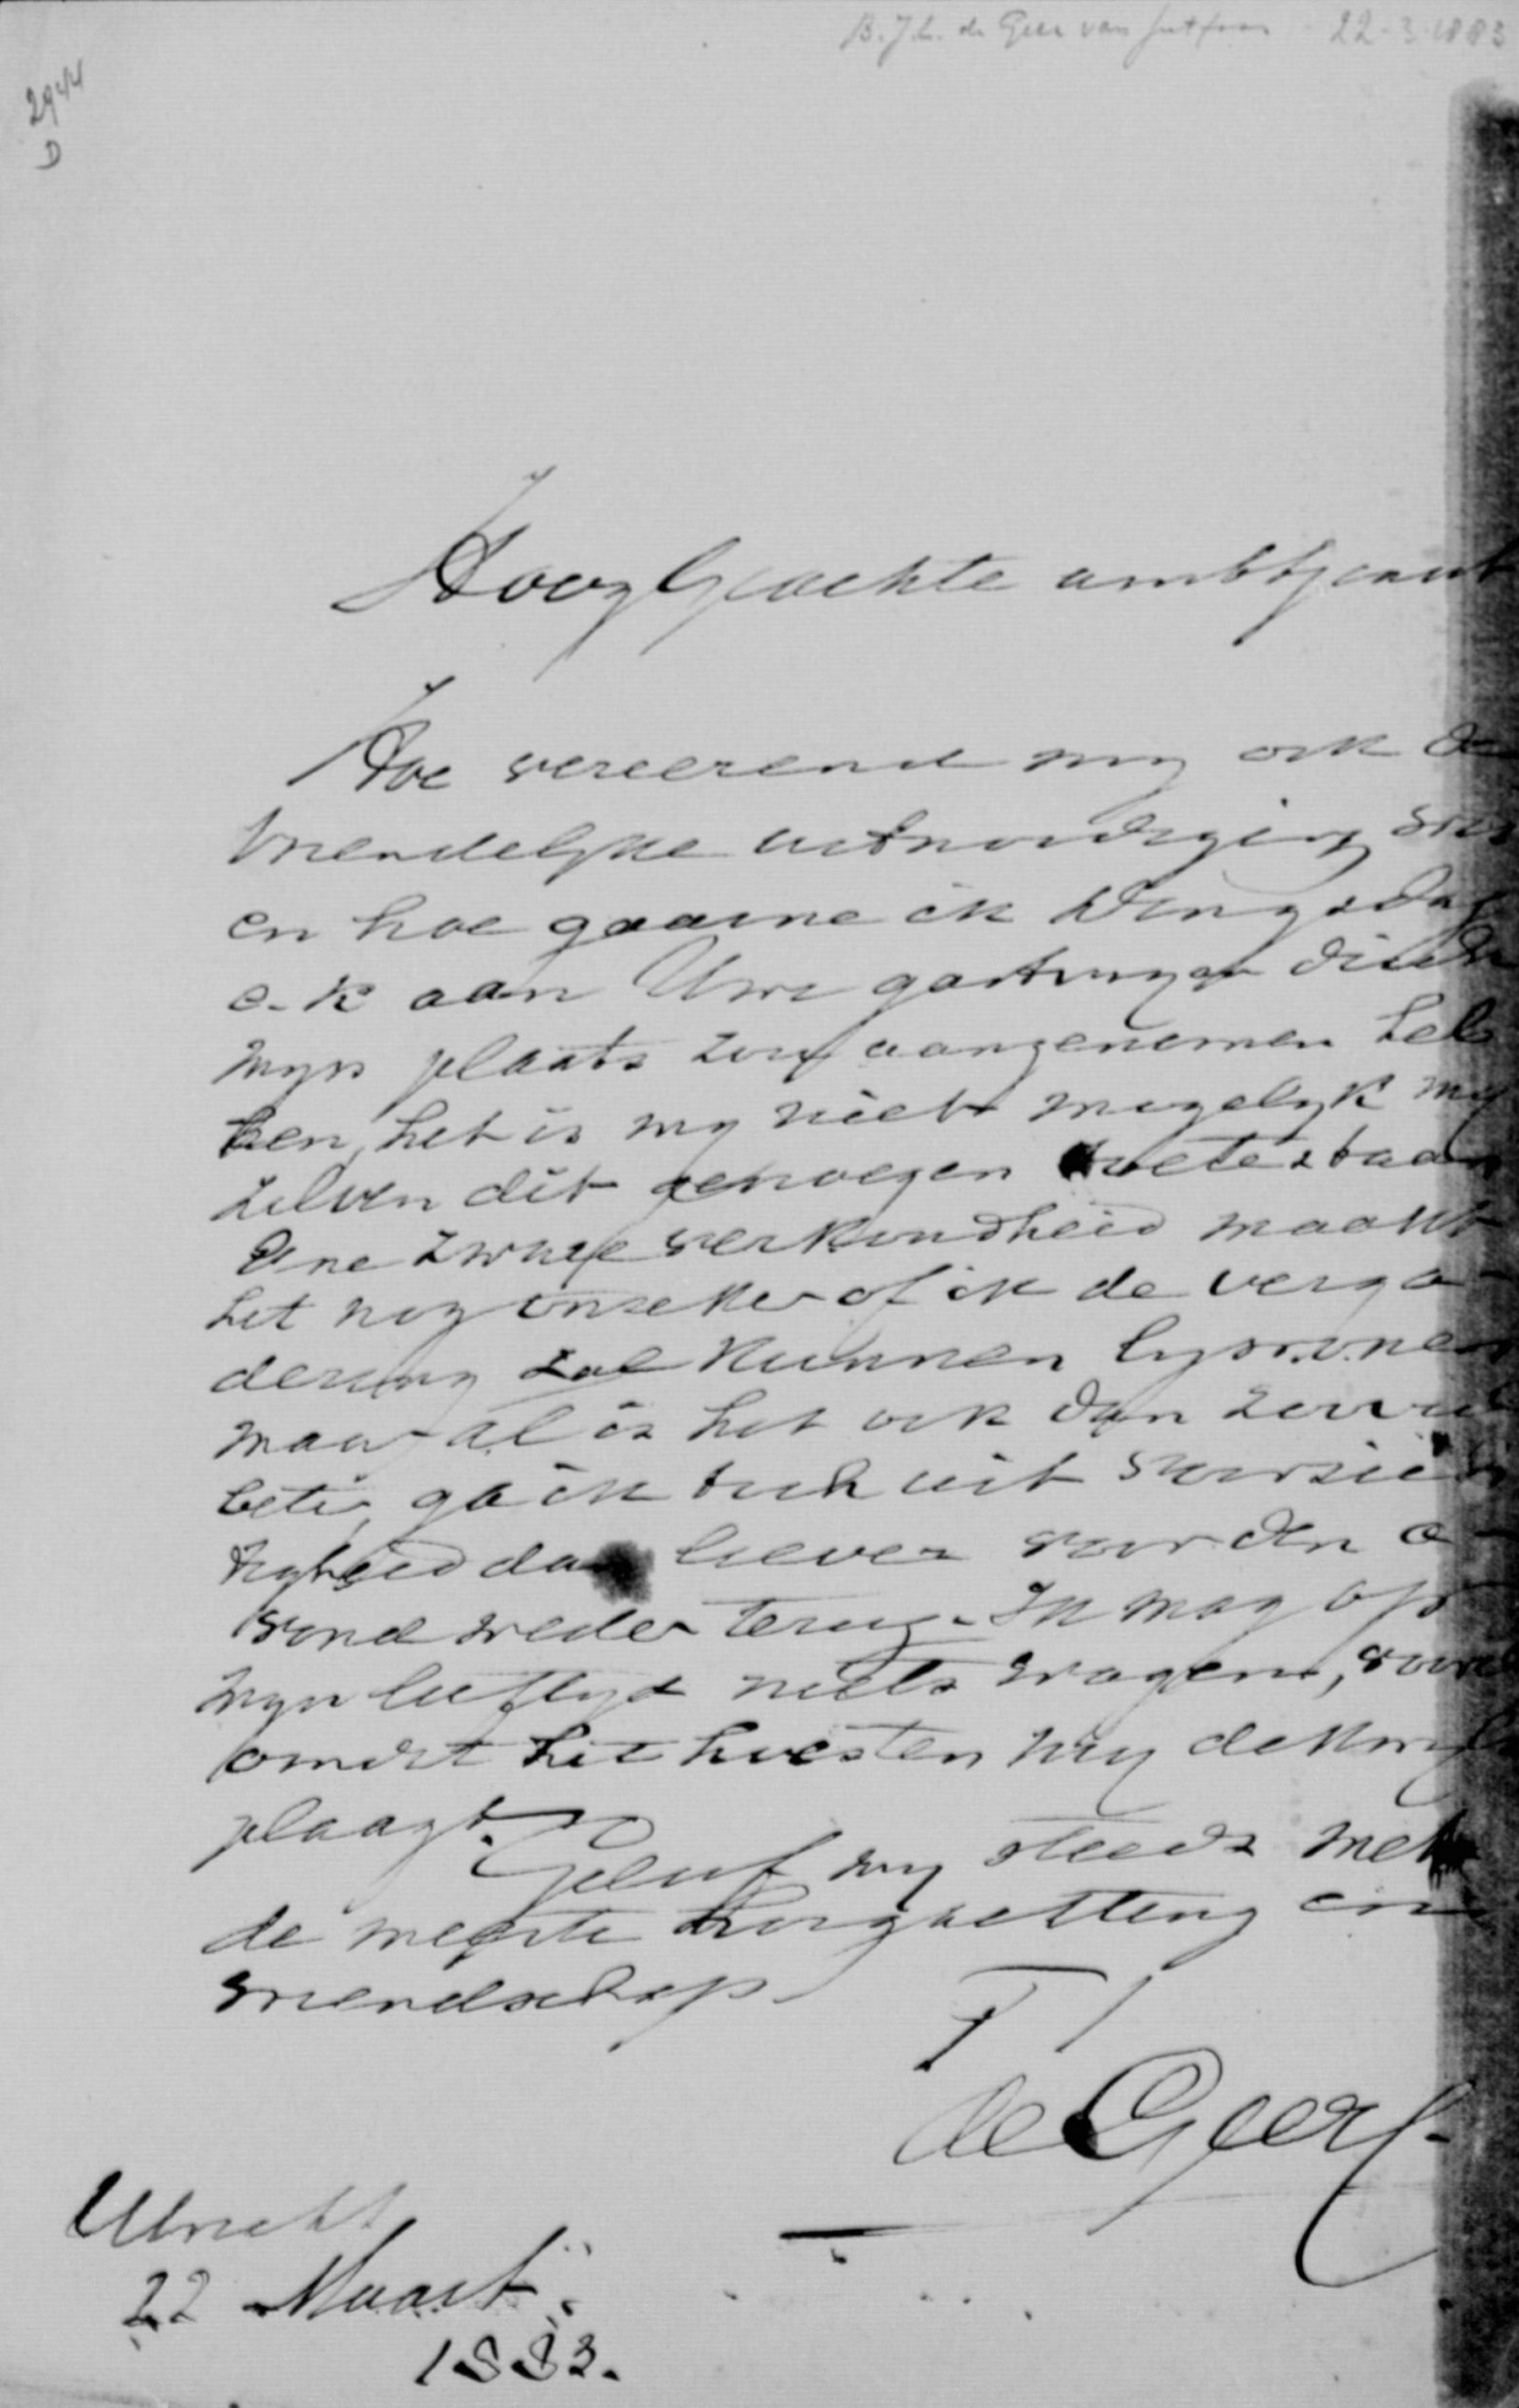 B.J.L. de Geer van Jutfaas 22-3-1883
2944
D
HoogGeachte ambtgenoot
Hoe vereerend my ook de
vriendelyke uitnoodiging was
en hoe gaarne ik Dingsdag
e.k. aan Uwe gastvryen disch
myn plaats zou aangenomen heb
ben, het is my niet mogelyk my
zelven dit genoegen toetestaan
Eene zware verkoudheid maakt
het nog onzeker of ik de verga-
dering zal kunnen bywonen
maar al is het ook dan zooveel
beter, ga ik toch uit voorzich
tigheid dan liever voor den a-
vond weder terug. Ik mag op
myn leeftyd niets wagen, vooral
omdat het hoesten my dikwyls
plaagt.
Geloof my steeds met
de meeste hoogachting en
vriendschap
TT
de Geer
Utrecht
22 Maart
1883.